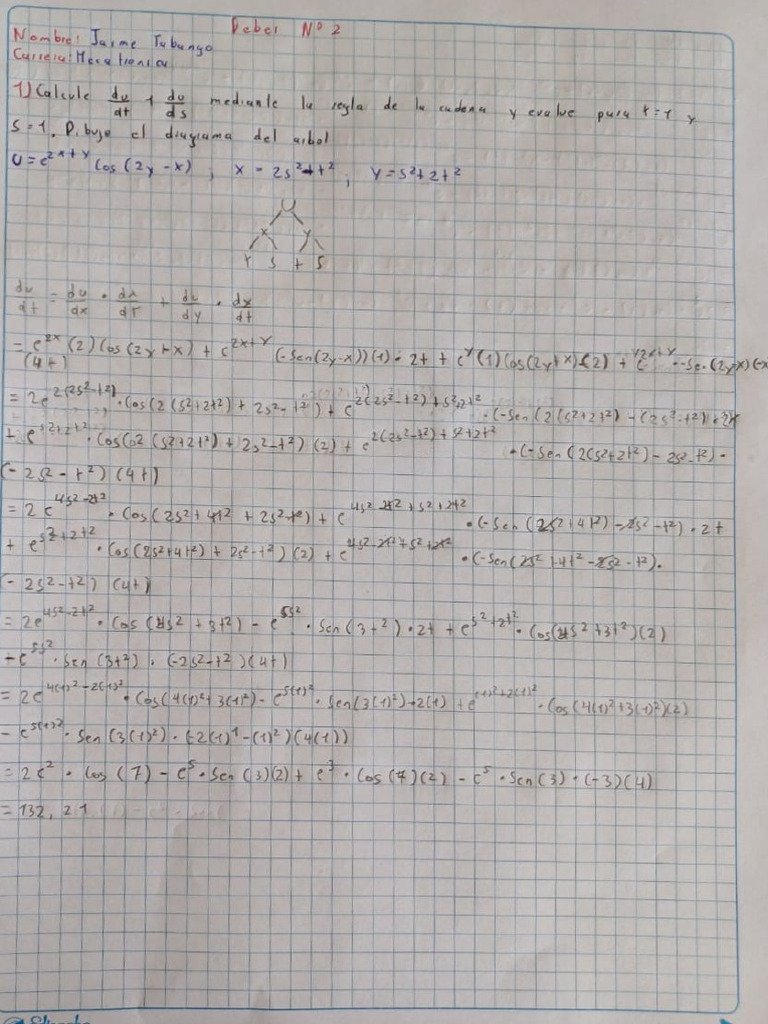 Deber Nº 2
Nombre: Jaime Tubungo
Carrera: Mecatronica
1) Calcule du/dt y du/ds mediante la regla de la cadena y evalue para t=1 y
s=1. Dibuje el diagrama del arbol
U=e^{2x+y} Cos(2y-x) ; x=2s²-t² ; y=s²+2t²
U
x y
t s t s
du/dt = du/dx · dx/dt + du/dy · dy/dt
= e^{2x} (2) Cos(2y+x) + e^{2x+y} (-Sen(2y-x))(1) · 2t + e^y (1) Cos(2y+x) (2) + e^{2x+y} · -Sen(2y-x)(-x)
(4t)
= 2e^{2(2s²-t²)} · Cos(2(s²+2t²)+2s²-t²) + e^{2(2s²-t²)+s²+2t²} · (-Sen(2(s²+2t²)-(2s²-t²)) · 2t
+ e^{s²+2t²} · Cos(2(s²+2t²)+2s²-t²)(2) + e^{2(2s²-t²)+s²+2t²} · (-Sen(2(s²+2t²)-2s²-t²) ·
(-2s²-t²)(4t)
= 2e^{4s²-2t²} · Cos(2s²+4t²+2s²-t²) + e^{4s²-2t²+s²+2t²} · (-Sen(2s²+4t²)-2s²-t²) · 2t
+ e^{s²+2t²} · Cos(2s²+4t²)+2s²-t²)(2) + e^{4s²-2t²+s²+2t²} · (-Sen(2s²+4t²-2s²-t²).
(-2s²-t²) (4t)
= 2e^{4s²-2t²} · Cos(4s²+3t²) - e^{5s²} · Sen(3t²) · 2t + e^{s²+2t²} · Cos(4s²+3t²)(2)
- e^{5s²} · Sen(3t²) · (-2s²-t²)(4t)
= 2e^{4(1)²-2(1)²} · Cos(4(1)²+3(1)²) - e^{5(1)²} · Sen(3(1)²) · 2(1) + e^{(1)²+2(1)²} · Cos(4(1)²+3(1)²)(2)
- e^{5(1)²} · Sen(3(1)²) · (-2(1)²-(1)²)(4(1))
= 2e² · Cos(7) - e⁵ · Sen(3)(2) + e³ · Cos(7)(2) - e⁵ · Sen(3) · (-3)(4)
= 132,21